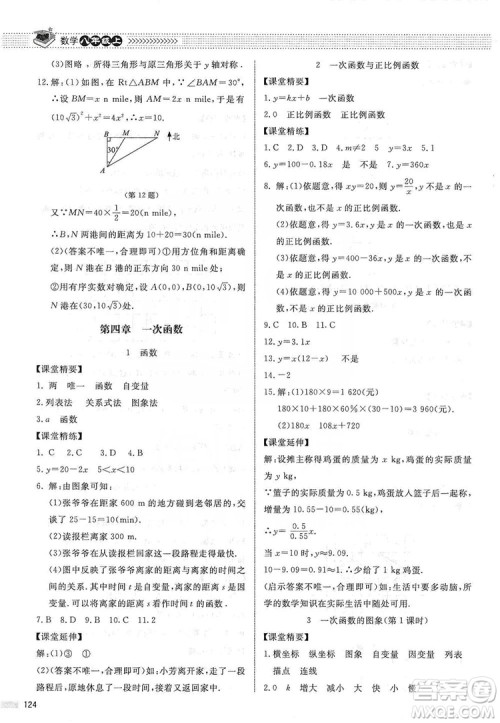 数学八年级上
(3)图略、所得三角形与原三角形关于 y 轴对称.
12.解:(1)如图,在 Rt△ABM 中,∠ABM=30°,
设 BM=x n mile,则 AM=2x n mile,
故(10√3)²+x²=(2x)²,
解得 x=10,即 BM=10 n mile.
B M N
北
30°
A
(第 12 题)
又∵MN=40×1/2=20(n mile),
∴B,N 两港间的距离为 10+20=30(n mile).
(2)(答案不唯一,合理即可)①用方位角和距离确定.
N 港在 B 港的正东方向 30 n mile 处.
②在图中建立平面直角坐标系,可得 A(0,0),
B(0,10√3),N(30,10√3).
第四章 一次函数
1 函数
【课堂精要】
1. 两 唯一 函数 自变量
2. 列表法 关系式法 图象法
3. a 函数
【课堂精练】
1. C 2. D 3. C 4. C
5. y=20-2x 5<x<10
6. 解:由图象可知:
(1)张爷爷在距家 600 m 的地方碰到老邻居的,交
谈了 25-15=10(min).
(2)读报栏离家 300 m.
(3)张爷爷在读报栏离家这一段路程走得最快.
(4)图中反映了距离和时间之间的关系,其中时间
是自变量,距离是因变量.
7. B 8. B 9. D 10. A
【课堂延伸】
解:(1)③ ①
(2)(答案不唯一,合理即可)小芳离开家走了一段
路程后来,原地休息了一会儿,又继续往前走
124
2 一次函数与正比例函数
【课堂精要】
1. y=kx+b 一次函数
2. 0 正比例函数 正比例函数
【课堂精练】
1. D 2. B 3. D 4. m≠2 5. 3 6. y=3x
7. y=100-0.18x 是 不是
8. 解:(1)依题意,得 xy=20,即 y=20/x,y 不是 x 的
一次函数,也不是 x 的正比例函数.
(2)依题意,得 y=3.6x,y 是 x 的一次函数,也是
x 的正比例函数.
(3)依题意,得 y=400-36x,y 是 x 的一次函数,
但不是 x 的正比例函数.
(4)依题意,得 y=10 000+500x,y 是 x 的一次函
数,但不是 x 的正比例函数.
9. C 10. A 11. B
12. y=x
13. y=0.18x 一次函数 不是
14. -2
15. 解:(1)180×9=1620(元)
180×10+(10-6)×90=2160(元)
(2)180x 90x+540
【课堂延伸】
解:设摊主称得鸡蛋的质量为 x kg,
鸡蛋的实际质量为 y kg,
∵篮子的实际质量为 0.5 kg,在摊主处称得的质
量为 10.55-10=0.55(kg),
∴y=0.5/0.55 x.
当 x=10 时,y≈9.09.
10-9.09=0.91≈1(kg),
∴摊主约少称了 1 kg 鸡蛋.
(启示答案不唯一,合理即可)生活中要多动脑,所
学的数学知识在实际生活中都可以用到.
3 一次函数的图象(第 1 课时)
【课堂精要】
1. 自变量 因变量 横坐标 纵坐标 图象 列表
描点 连线
2. 0 k 增大 减小 大 快 小